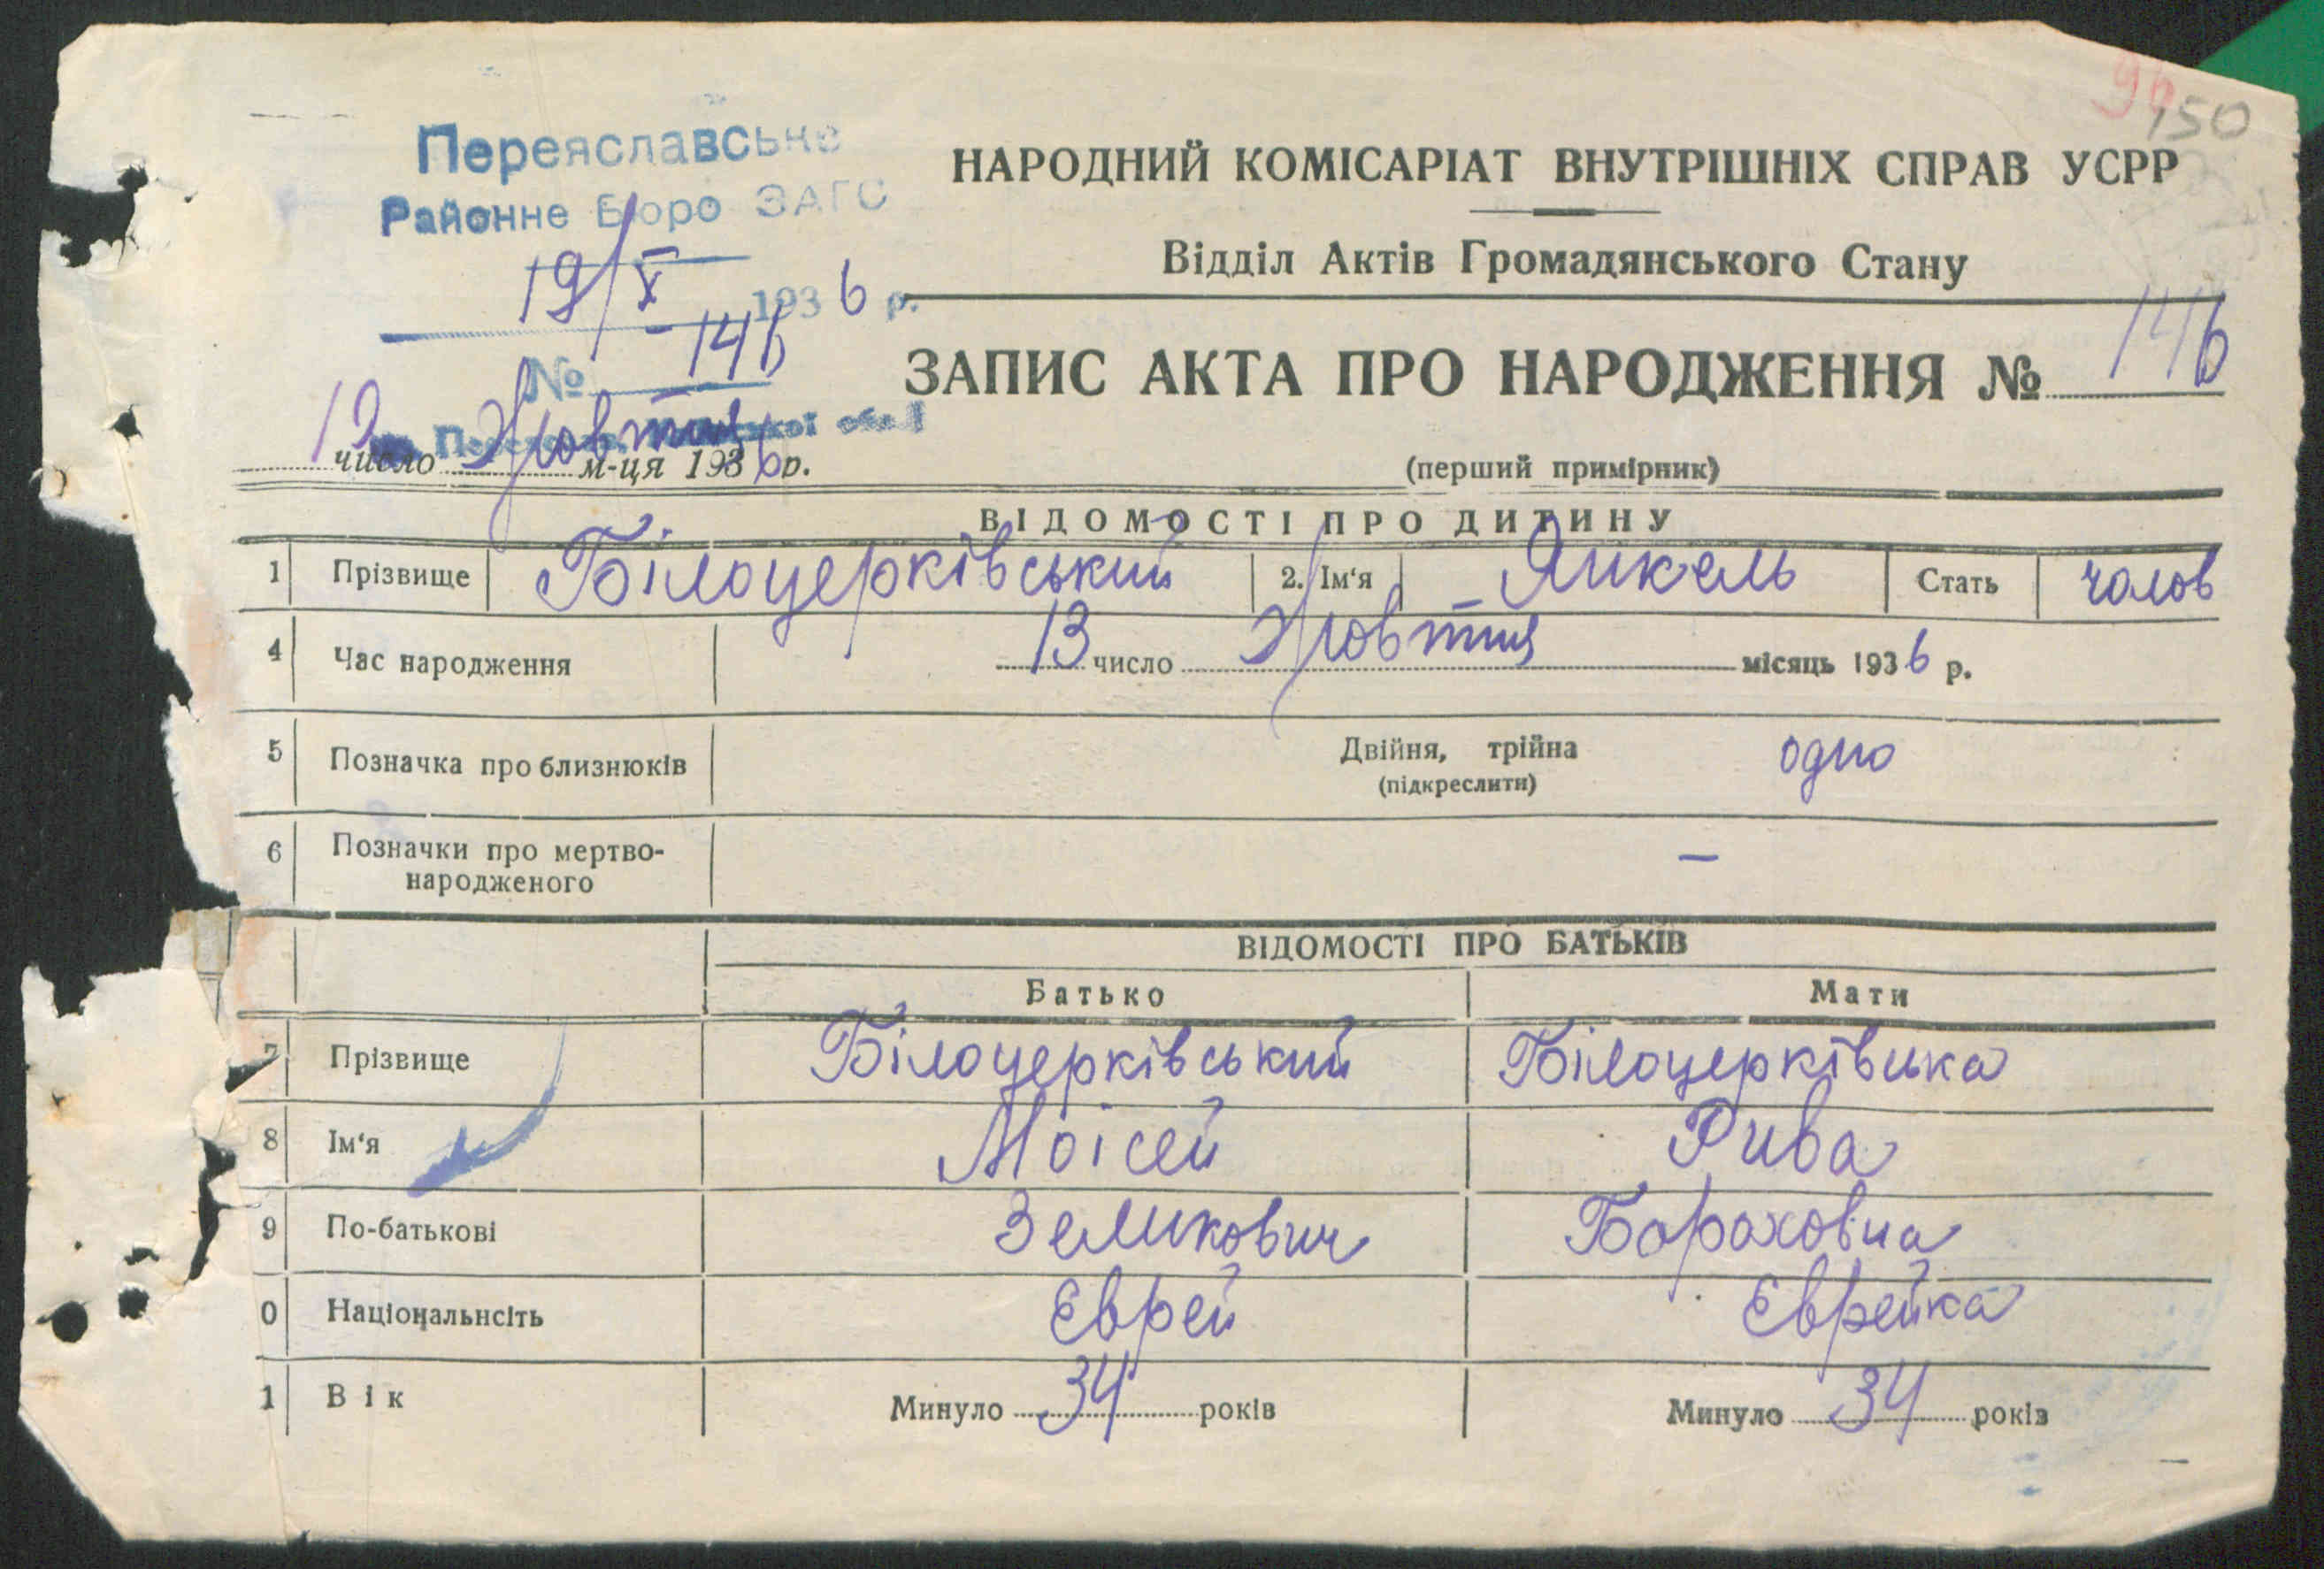 96 150
Переяславське
Районне Бюро ЗАГС
19/X 1936 р.
№ 146
НАРОДНИЙ КОМІСАРІАТ ВНУТРІШНІХ СПРАВ УСРР
Відділ Актів Громадянського Стану
ЗАПИС АКТА ПРО НАРОДЖЕННЯ № 146
19 число Жовтня м-ця 1936 р.
(перший примірник)
ВІДОМОСТІ ПРО ДИТИНУ
1 Прізвище Білоцерківський 2. Ім‘я Янкель Стать чолов
4 Час народження 13 число Жовтня місяць 1936 р.
5 Позначка про близнюків Двійня, трійна одно
(підкреслити)
6 Позначки про мертво-
народженого –
ВІДОМОСТІ ПРО БАТЬКІВ
Батько Мати
7 Прізвище Білоцерківський Білоцерківська
8 Ім‘я Моісей Рива
9 По-батькові Зеликович Бораховна
0 Національнсіть Єврей Єврейка
1 Вік Минуло 34 років Минуло 34 років